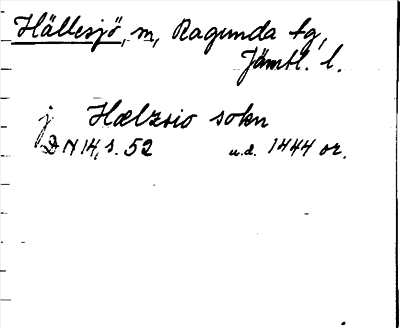 Hällesjö, sn, Ragunda tg,
Jämtl. l.
j Hælzsio sokn
DN 14, s. 52 u.d. 1444 or.